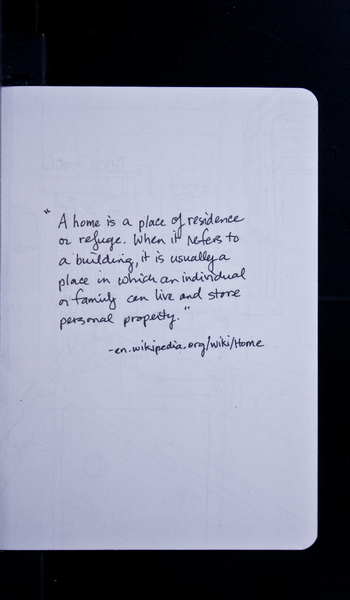 " A home is a place of residence
or refuge. When it refers to
a building, it is usually a
place in which an individual
or family can live and store
personal property."
-en.wikipedia.org/wiki/Home